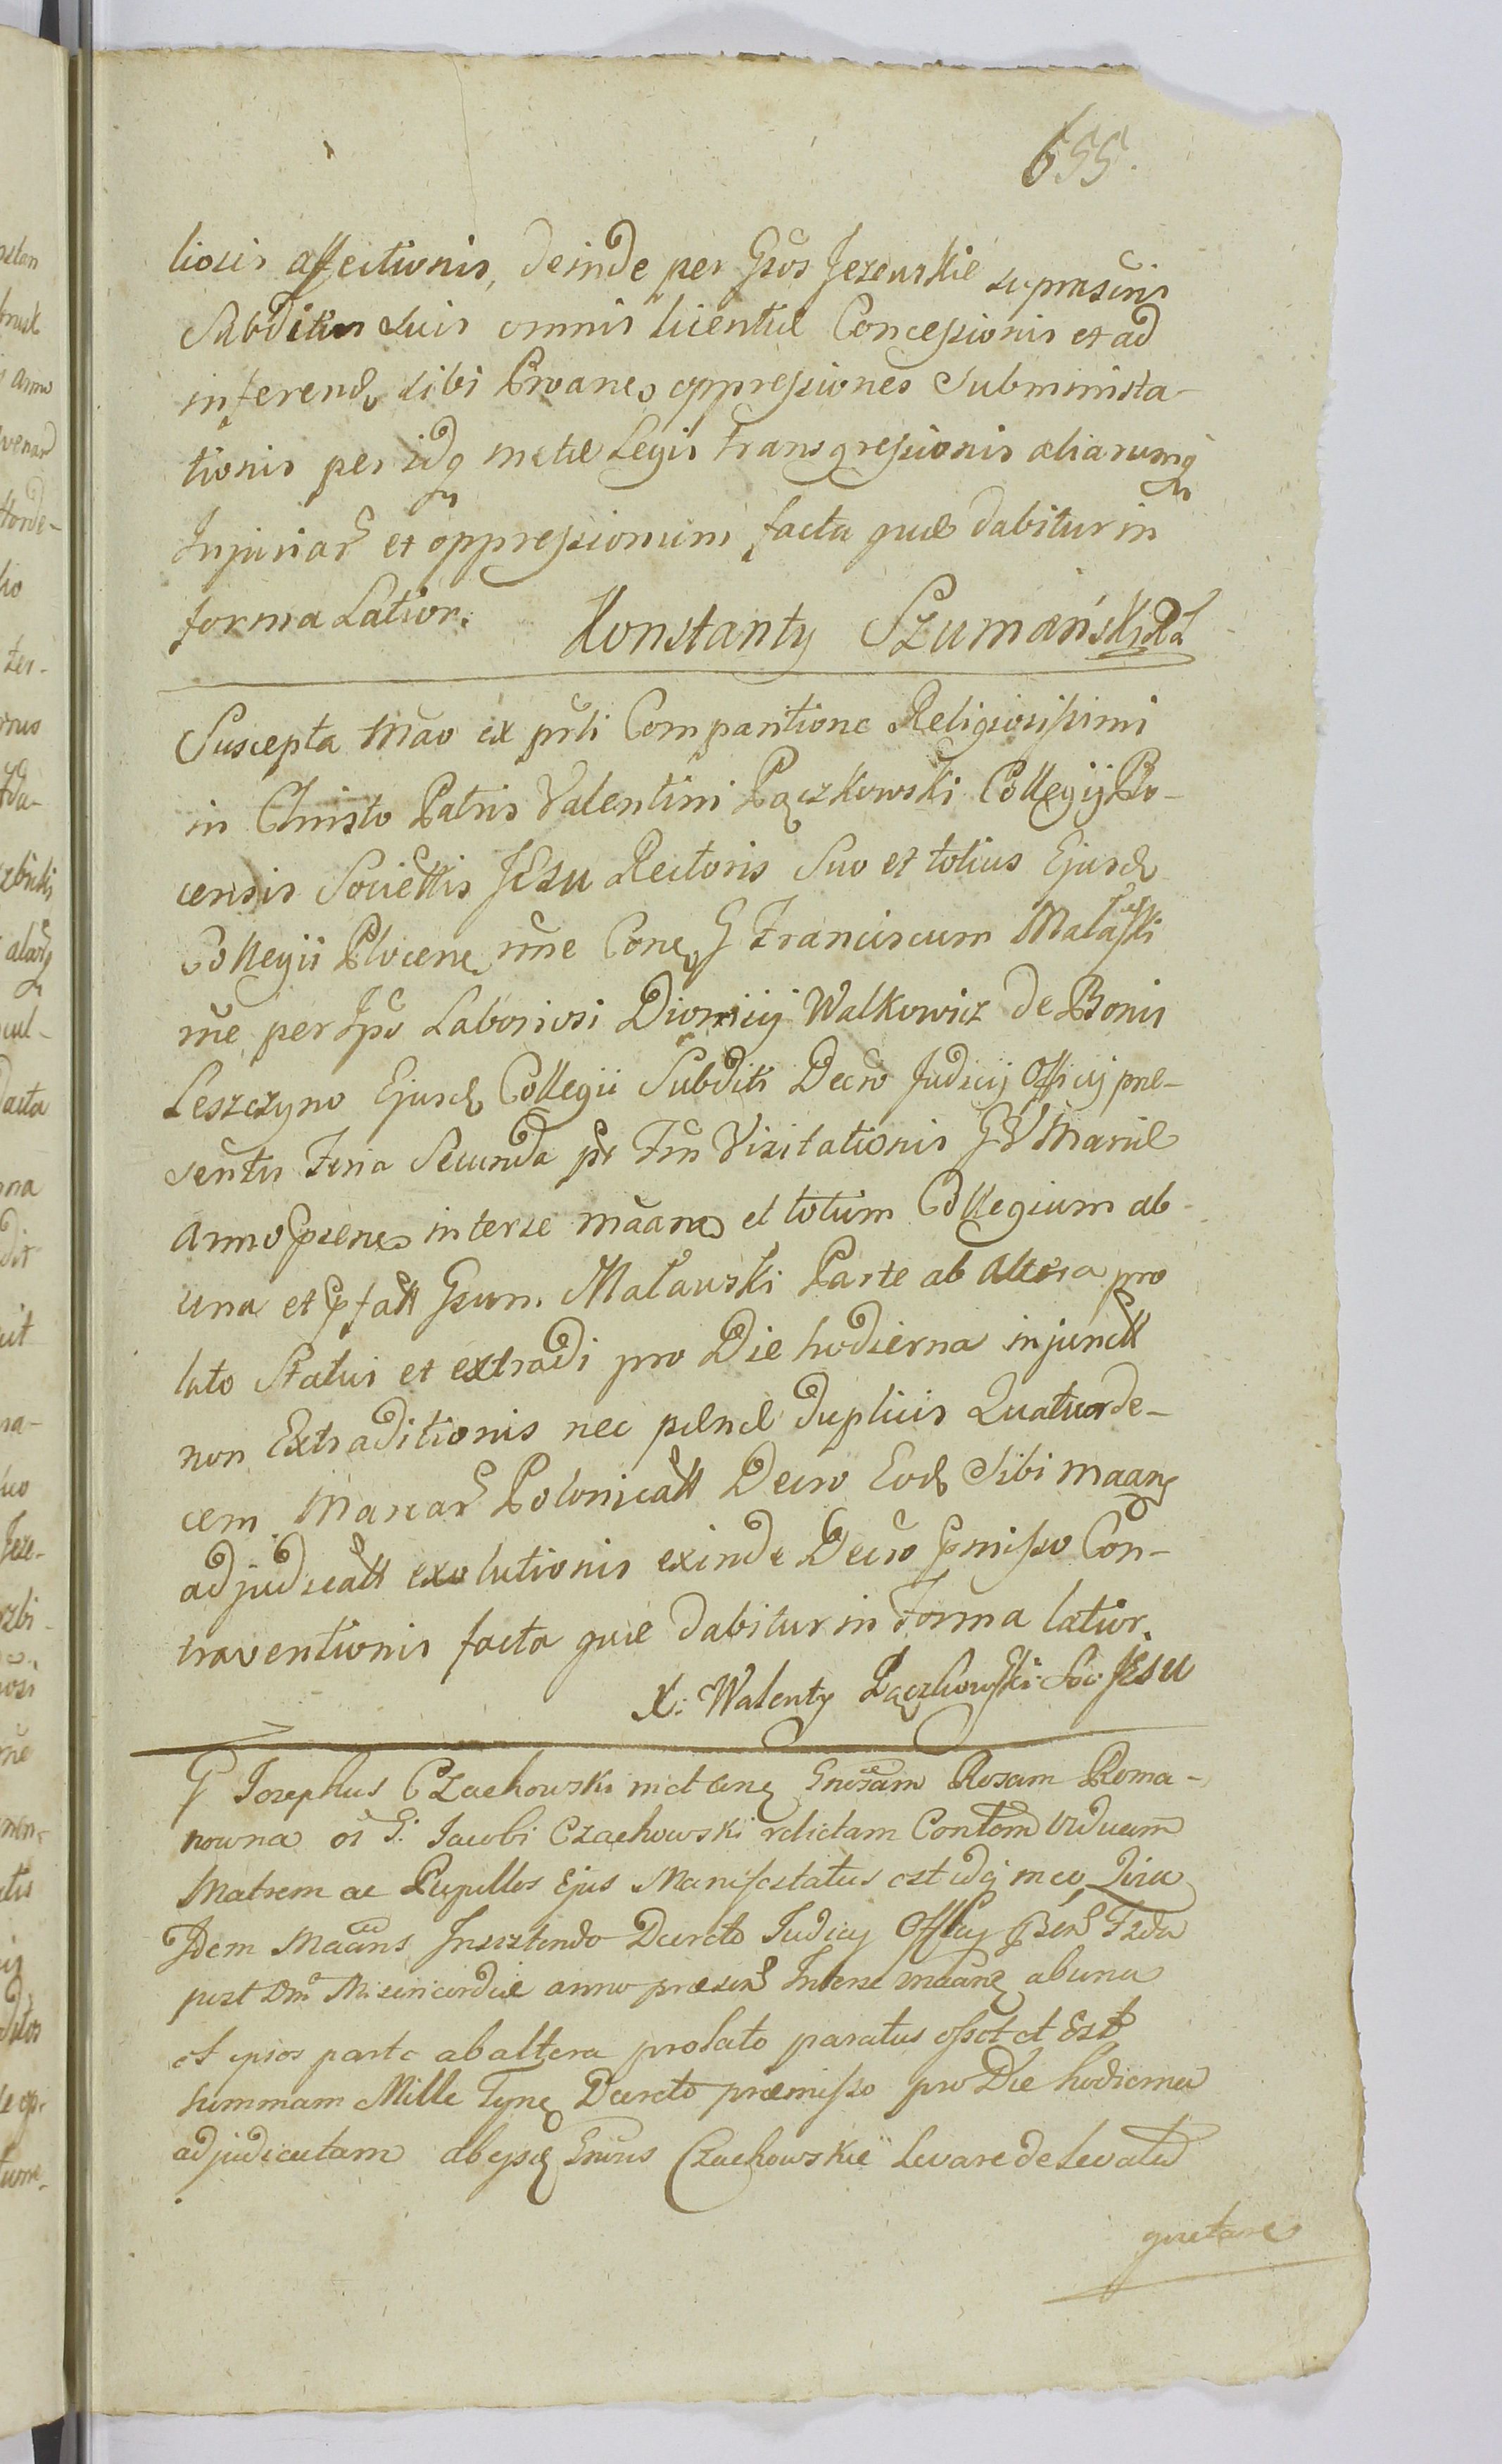 655.
liosis affectionis, deinde per Gsos Jezewskie suprascris
Subditis suis omnis licentiæ Concessionis et ad
inferend sibi Actoane oppressiones Subminista-
tionis per idq metæ Legis transgressionis aliarumq
Injuriar et oppressionum facta quæ dabitur in
forma Latior.
Konstanty Szumański
Suscepta Mao ex pnti Comparitione Religiosissimi
in Christo Patris Valentini Pączkowski Collegij Plo-
censis Societtis JEsu Rectoris Suo et totius Ejusd
Collegii Plocene nne Cone G Franciscum Małaski
me per Ipso Laboriosi Dionicij Walkowicz de Bonis
Leszczyno Ejusd Collegii Subditi Decro Judicij Officij præ-
sentis Feria Secunda pt Ftm Visitationis B V Mariæ
anno psene interse maane et totum Collegium ab
una et pfatt Gsum Maławski Parte ab altera pro
lato Status et extradi pro Die hodierna injunctt
non Extraditionis nec pænæ duplicis Quatuorde-
cem Marcar Polonicatt Decro Eod Sibi maane
adjudicatt exolutionis exinde Decro pmisso Con-
traventionis facta quæ dabitur in Forma latior.
X. Walenty Pączkowski Soc: JEsu
G Josephus Czachowski nct cne Gnosam Rosam Roma-
nowna oi G. Jacobi Czachowski relictam Contem Viduam
Matrem ac Pupillos Ejus Manifestatus est idq in eo Quia
Idem Maans Insistendo Decreto Judicij Officij psen Feria
post Dm Misericordiæ anno præsen Interse maane ab una
et ipsos parte ab altera prolato paratus esset et Est
summam Mille Tyne Decreto præmisso pro Die hodierna
adjudicatam ab ejsd Gnosis Czachowskie levare de levata
quietare